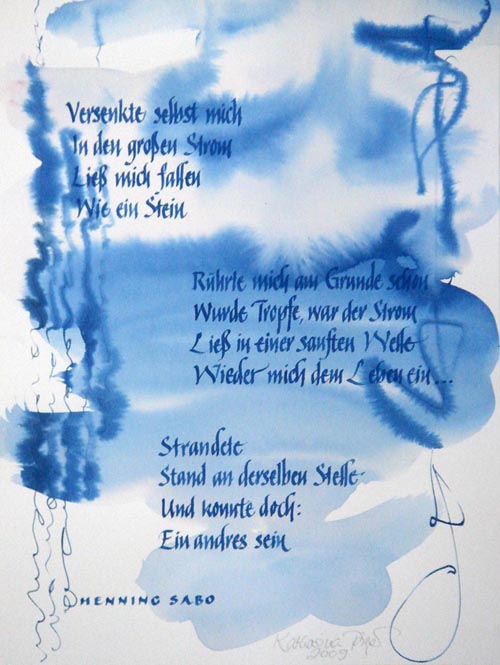 Versenkte selbst mich
In den großen Strom
Ließ mich fallen
Wie ein Stein
Rührte mich am Grunde schon
Wurde Tropfe, war der Strom
Ließ in einer sanften Welle
Wieder mich dem Leben ein...
Strandete
Stand an derselben Stelle:
Und konnte doch:
Ein andres sein
HENNING SABO
2009